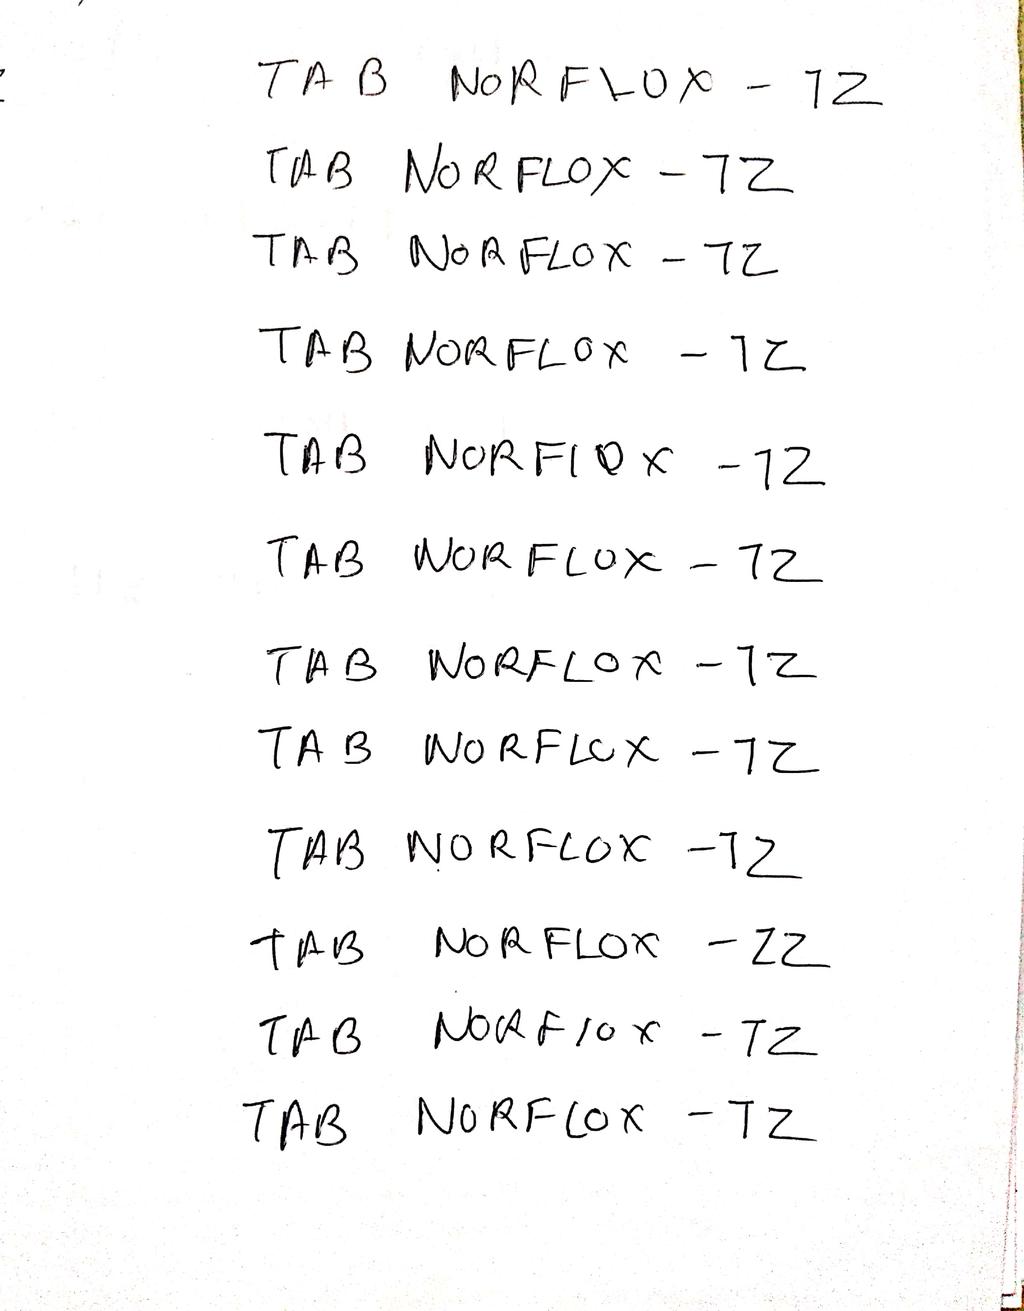 TAB NORFLOX - TZ
TAB NORFLOX - TZ
TAB NORFLOX - TZ
TAB NORFLOX - TZ
TAB NORFLOX - TZ
TAB NORFLOX - TZ
TAB NORFLOX - TZ
TAB NORFLOX - TZ
TAB NORFLOX - TZ
TAB NORFLOX - ZZ
TAB NORFLOX - TZ
TAB NORFLOX - TZ